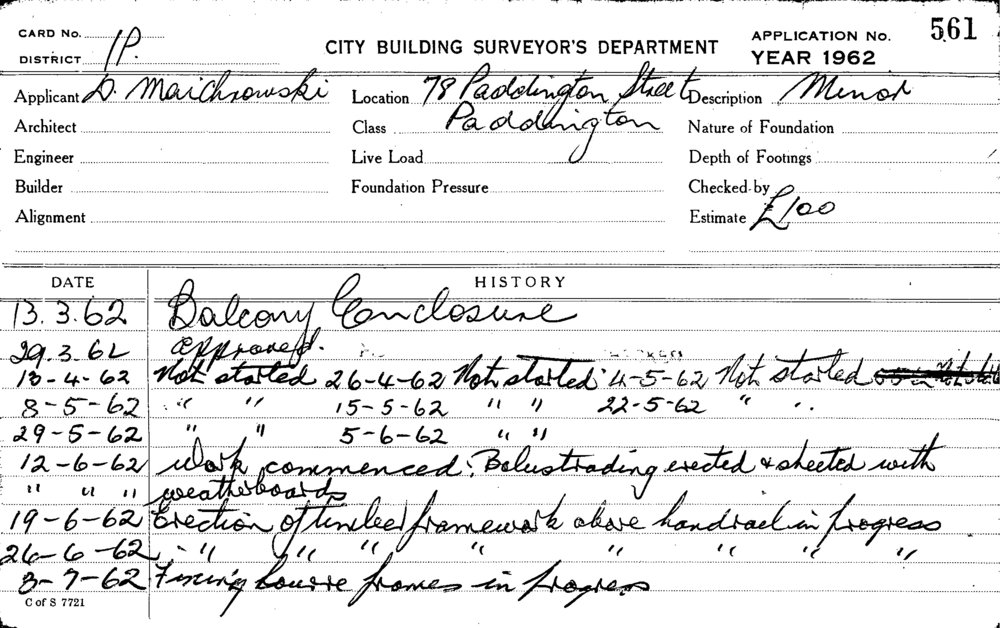 CARD No.
DISTRICT 1P.
CITY BUILDING SURVEYOR'S DEPARTMENT
APPLICATION No. 561
YEAR 1962
Applicant D. Maichrowski Location 78 Paddington Street Description Minor
Architect Class Paddington Nature of Foundation
Engineer Live Load Depth of Footings
Builder Foundation Pressure Checked by
Alignment Estimate £100
DATE HISTORY
13.3.62 Balcony Enclosure
29.3.62 Approved.
18-4-62 Not started 26-4-62 Not started 4-5-62 Not started
8-5-62 " " 15-5-62 " " 22-5-62 " "
29-5-62 " " 5-6-62 " "
12-6-62 Work commenced: Balustrading erected & sheeted with
" " " weatherboards
19-6-62 Erection of timber framework above handrail in progress
26-6-62 " " " " " " " "
3-7-62 Fixing louvre frames in progress
C of S 7721